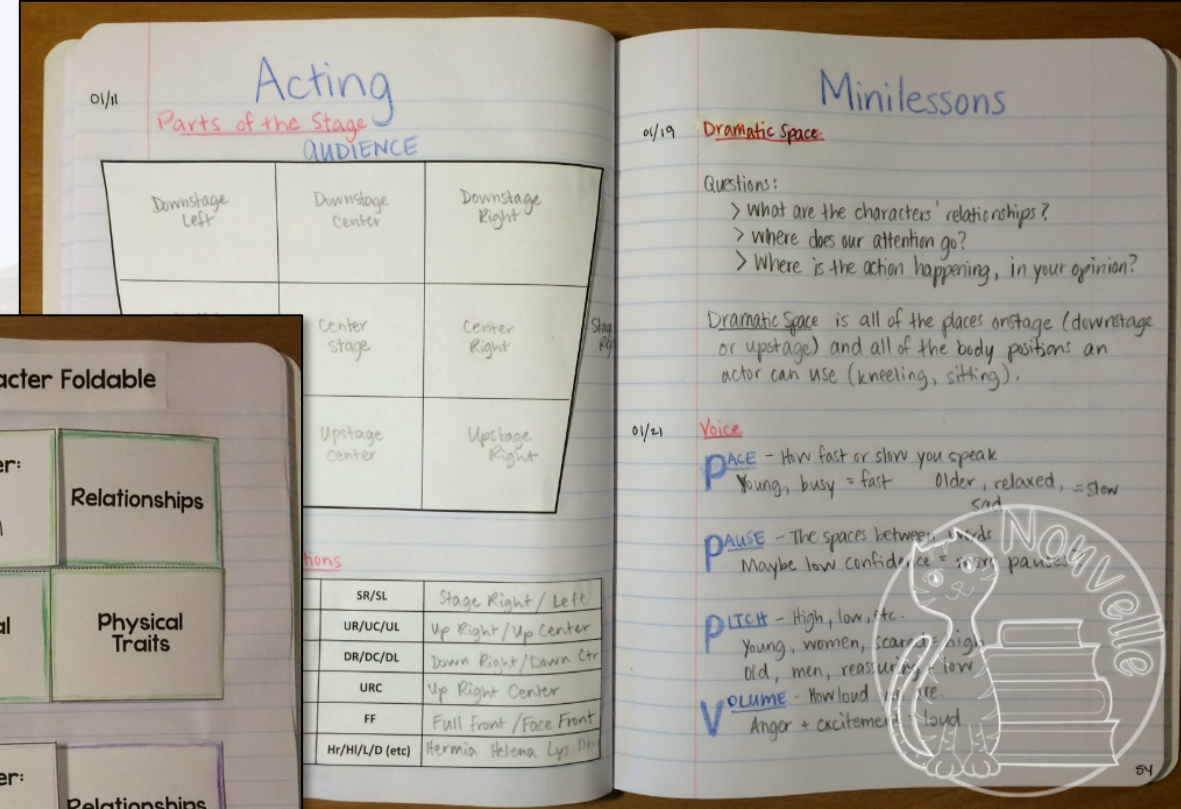 Acting
01/11
Parts of the Stage
AUDIENCE
Downstage
Left
Downstage
Center
Downstage
Right
Center
Stage
Center
Right
Stage
Upstage
Center
Upstage
Right
SR/SL
Stage Right / Left
UR/UC/UL
Up Right/Up Center
DR/DC/DL
Down Right/Down Ctr
URC
Up Right Center
FF
Full Front /Face Front
Hr/Hl/L/D (etc)
Hermia Helena Lys
Minilessons
01/19
Dramatic Space
Questions:
> What are the characters' relationships?
> Where does our attention go?
> Where is the action happening, in your opinion?
Dramatic Space is all of the places onstage (downstage
or upstage) and all of the body positions an
actor can use (kneeling, sitting).
01/21
Voice
PACE - How fast or slow you speak
Young, busy = fast Older, relaxed, = slow
sad
PAUSE - The spaces between words
Maybe low confidence = more pauses
PITCH - High, low, etc.
Young, women, scared = high
Old, men, reassuring = low
VOLUME - How loud
Anger + excitement = loud
54
Foldable
Relationships
Physical
Traits
Relationships
Nouvelle